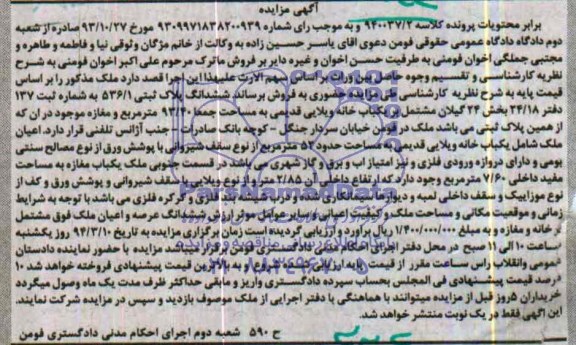 آگهی مزایده
برابر محتویات پرونده کلاسه ۹۴۰۰۳۷/۲ و به موجب رای شماره ۹۳۰۹۹۷۱۸۳۸۲۰۰۹۳۹ مورخ ۹۳/۱۰/۲۷ صادره از شعبه
دوم دادگاه عمومی حقوقی فومن دعوی آقای یاسر حسین زاده به وکالت از خانم مژگان وثوقی نیا و فاطمه و طاهره و
مجتبی جملگی اخوان فومنی به طرفیت حسن اخوان و غیره دایر بر فروش ماترک مرحوم علی اکبر اخوان فومنی به شرح
نظریه کارشناسی و تقسیم وجوه حاصل بین وراث بر اساس سهم الارث علیهذا این اجرا قصد دارد ملک مذکور را بر اساس
قیمت پایه به شرح نظریه کارشناسی طی مزایده حضوری به فروش برساند. ششدانگ پلاک ثبتی ۵۳۶/۱ به شماره ثبت ۱۳۷
دفتر ۲۴/۱۸ بخش ۲۳ گیلان مشتمل بر یکباب خانه ویلایی قدیمی به مساحت جمعا ۹۳/۴۰ مترمربع و مغازه موجود در ان که
از همین پلاک ثبتی می باشد ملک در فومن خیابان سردار جنگل - کوچه بانک صادرات - جنب آژانس تلفنی قرار دارد. اعیان
ملک شامل یکباب خانه ویلایی قدیمی به مساحت حدود ۵۲ مترمربع از نوع سقف شیروانی با پوشش ورق از نوع مصالح سنتی
بومی و دارای دروازه ورودی فلزی و نیز امتیاز اب و برق و گاز شهری می باشد. قسمت جنوبی ملک یکباب مغازه به مساحت
مفید داخلی ۷/۶۰ مترمربع وجود دارد که ارتفاع داخلی آن ۲/۸۵ متر و از نوع ویلایی با سقف شیروانی و پوشش ورق و کف از
نوع موزاییک و سقف داخلی لمبه و دیوارها سیمانکاری شده و درب شیشه بند فلزی و کرکره فلزی می باشد با توجه به شرایط
زمانی و موقعیت مکانی و مساحت ملک و کیفیت اعیانی و سایر عوامل موثر ارزش ششدانگ عرصه و اعیان ملک فوق مشتمل
بر خانه و مغازه و به مبلغ ۱/۴۰۰/۰۰۰/۰۰۰ ریال براورد و ارزیابی گردیده است زمان برگزاری مزایده به تاریخ ۹۴/۳/۱۰ روز یکشنبه
ساعت ۱۰ الی ۱۱ صبح در محل دفتر اجرای احکام مدنی دادگستری فومن برگزار میباشد مزایده با حضور نماینده دادستان
عمومی وانقلاب راس ساعت مقرر از قیمت پایه ارزیابی شده شروع و به بالاترین قیمت پیشنهادی فروخته خواهد شد ۱۰
درصد قیمت پیشنهادی فی المجلس بحساب سپرده دادگستری واریز و مابقی حداکثر ظرف مدت یک ماه وصول میگردد
خریداران ۵ روز قبل از مزایده میتوانند با هماهنگی با دفتر اجرایی از ملک موصوف بازدید و سپس در مزایده شرکت نمایند.
این اگهی فقط در یک نوبت منتشر خواهد شد.
ح ۵۹۰ شعبه دوم اجرای احکام مدنی دادگستری فومن